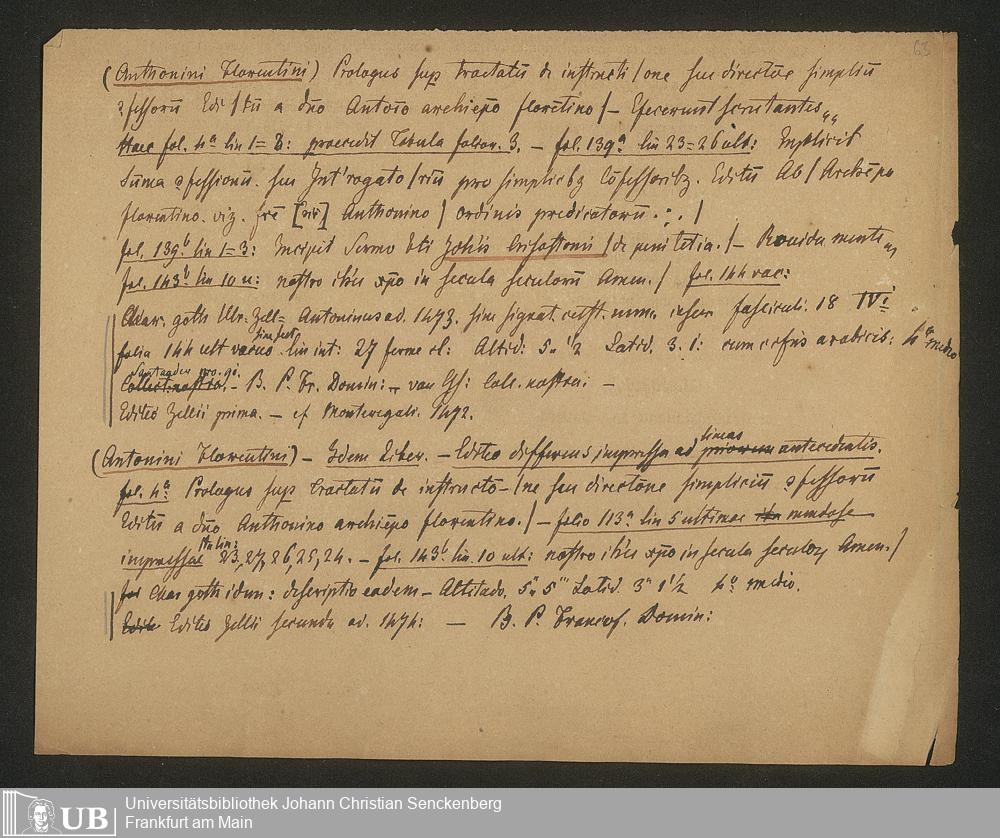 63
(Anthonini Florentini) Prologus sup tractatū de instructi/one seu directōe simpliū
ꝯfessorū Edi/tū a dn̄o Antoīo archiepō florētino/ — Defecerunt scrutantes
Haec fol. 4a lin 1=8: praecedit Tabula folior. 3. — fol. 139a lin 23=26 ult: Explicit
Sūma ꝯfessionū. seu Int'rogato/riū pro simplicibꝫ cōfessoribꝫ. Editū Ab/ Archiēpo
florentino. viz. fr̄e [sic] Anthonino/ ordinis predicatorū .:. /
fol. 139b lin 1=3: Incipit Sermo bti Joh̄is Crisostomi /de penitētia./ —
fol. 143b lin 10 u: nostro ih'u xp̄o in secula seculorū Amen./ fol. 144 vac:
Char. goth Ulr. Zell= Antoninus ad. 1473. sine signat. cust. num. inser fascicul: 18 IVi
folia 144 ult vacuo lin int: 27 ferme cl: Altid: 5. 1/2 Latid. 3. 1: cum cifris arabicis: 4a medio
sine fest
Collect. nostra. — B. P. Fr. Domin: — van Gs: Coll. nostrai —
Editio Zellii prima. — cf Monteregali. 1472.
(Antonini Florentini) — Idem Liber. — Editio differens, impressa ad priorum antecedentis.
lineas
fol. 4a Prologus sup Tractatū de instructō—/ne seu directōne simpliciū ꝯfessorū
Editū a dn̄o Anthonino archiēpo florentino./ — folio 113a lin 5 ultimae ita mendose
impressae 23, 27, 26, 25, 24. — fol. 143b lin. 10 ult: nostro ih'u xp̄o in secula seculoꝝ Amen./
ut lin:
fol Char goth idem: descriptio eadem — Altitudo. 5." 5''' Latid. 3" 1 1/2 4o medio.
Editi Editio Zellii secunda ad. 1474: — B. P. Francof. Domin:
Universitätsbibliothek Johann Christian Senckenberg
Frankfurt am Main
UB